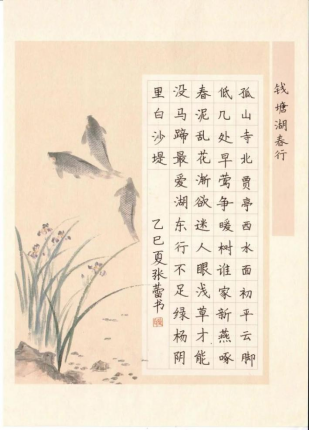 钱塘湖春行
孤山寺北贾亭西水面初平云脚
低几处早莺争暖树谁家新燕啄
春泥乱花渐欲迷人眼浅草才能
没马蹄最爱湖东行不足绿杨阴
里白沙堤
乙巳夏张蕾书